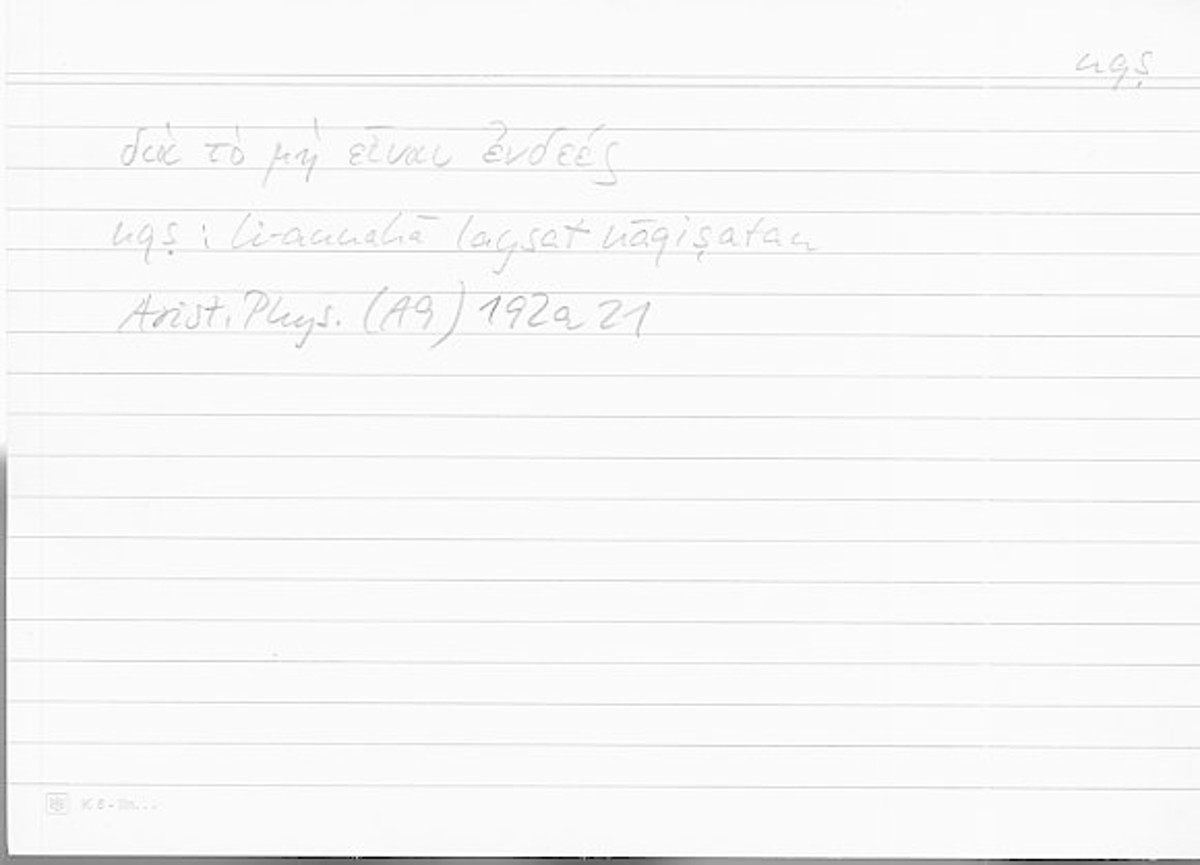 nqṣ
διὰ τὸ μὴ εἶναι ἐνδεές
nqṣ : li-annahā laysat nāqiṣatan
Arist. Phys. (A9) 192a 21